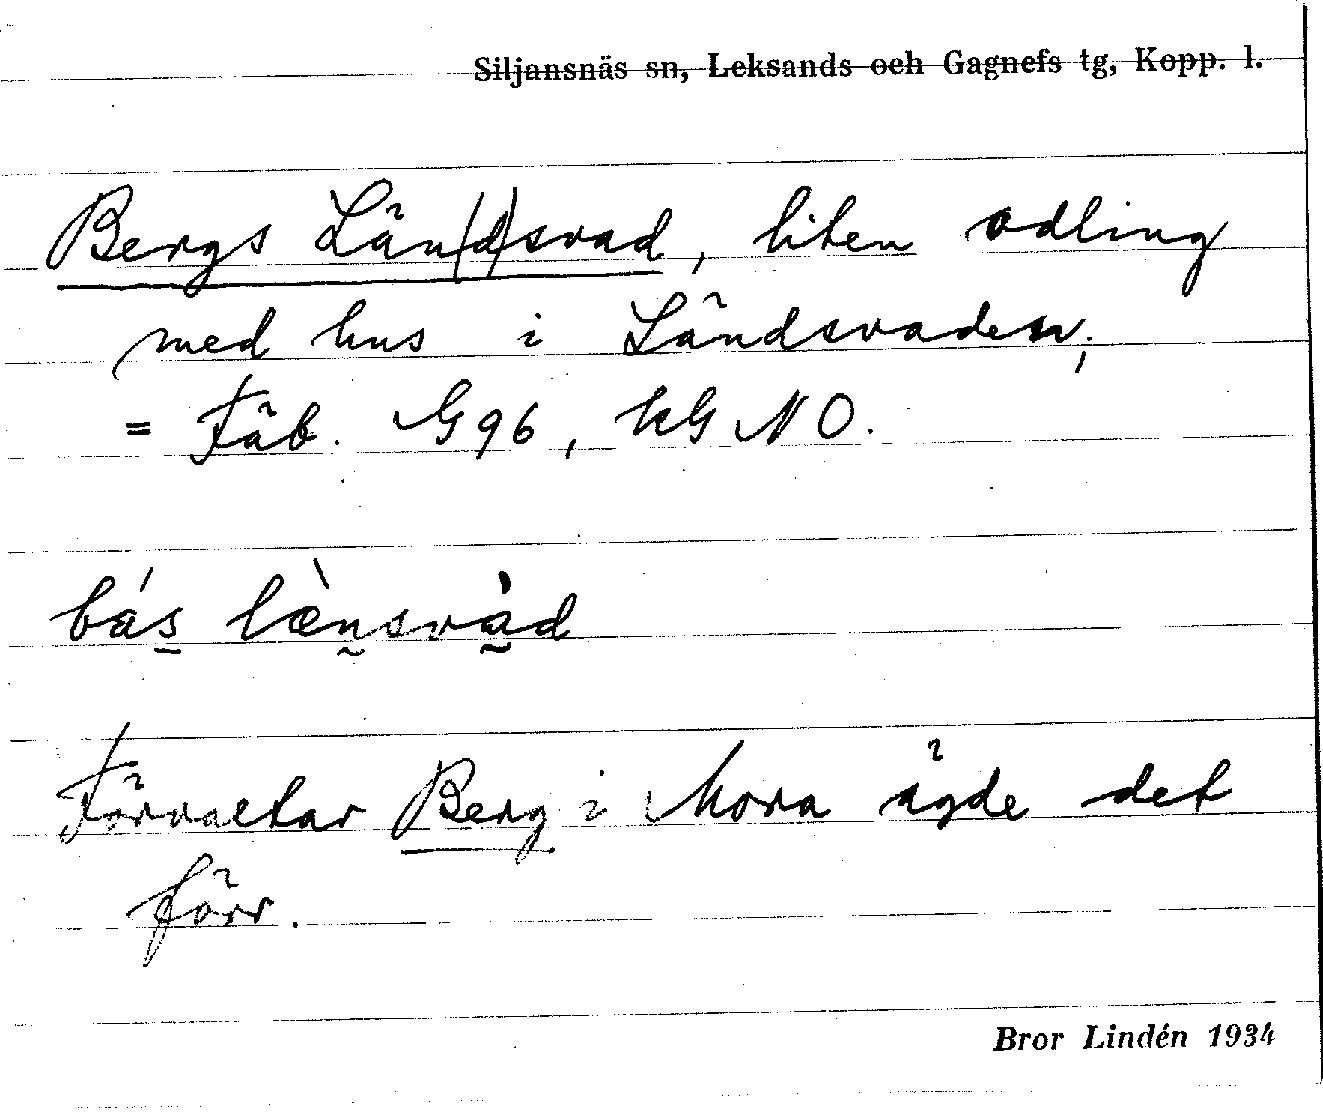 Siljansnäs sn, Leksands och Gagnefs tg, Kopp. l.
Bergs Län(d)svad, liten odling
med hus i Ländsvaden;
= Fäb. G96, kG NO.
bás læ̀nsvàd
Förvaltar Berg i Mora ägde det
förr.
Bror Lindén 1934